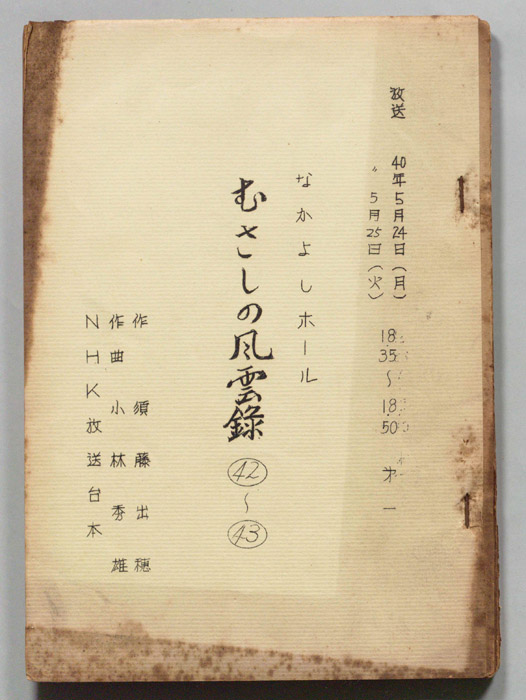 放送 40年5月24日(月) 18.35～18.50 第一
〃 5月25日(火)
なかよしホール
むさしの風雲録 ㊷～㊸
作 須藤出穂
作曲 小林秀雄
NHK放送台本